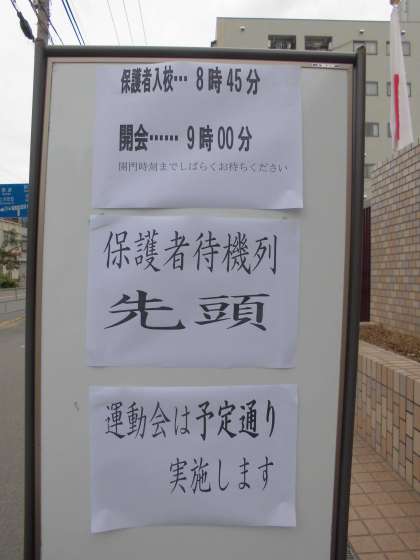 保護者入校… 8時45分
開会…… 9時00分
開門時刻までしばらくお待ちください
保護者待機列
先頭
運動会は予定通り
実施します